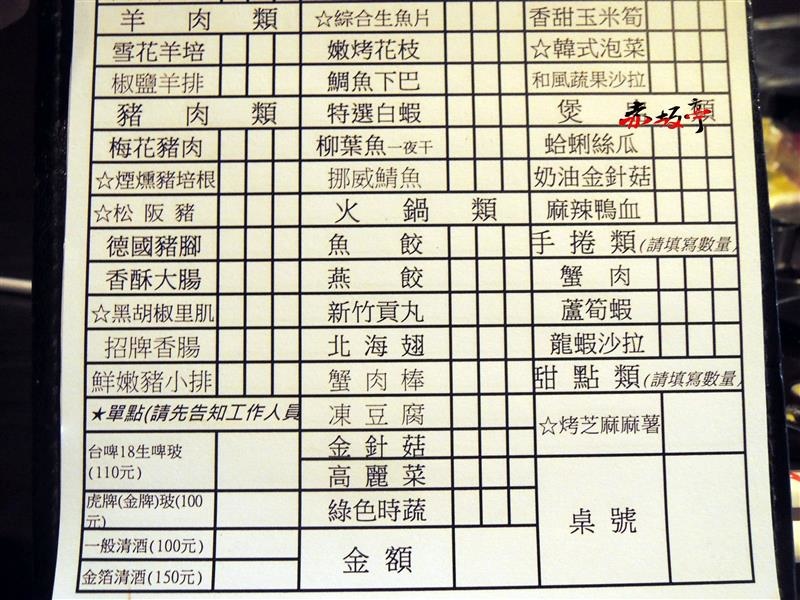 羊肉類
雪花羊培
椒鹽羊排
豬肉類
梅花豬肉
☆煙燻豬培根
☆松阪豬
德國豬腳
香酥大腸
☆黑胡椒里肌
招牌香腸
鮮嫩豬小排
★單點(請先告知工作人員
台啤18生啤玻
(110元)
虎牌(金牌)玻(100
元)
一般清酒(100元)
金箔清酒(150元)
☆綜合生魚片
嫩烤花枝
鯛魚下巴
特選白蝦
柳葉魚一夜干
挪威鯖魚
火鍋類
魚餃
燕餃
新竹貢丸
北海翅
蟹肉棒
凍豆腐
金針菇
高麗菜
綠色時蔬
金額
香甜玉米筍
☆韓式泡菜
和風蔬果沙拉
煲類
赤坂亭
蛤蜊絲瓜
奶油金針菇
麻辣鴨血
手捲類(請填寫數量)
蟹肉
蘆筍蝦
龍蝦沙拉
甜點類(請填寫數量)
☆烤芝麻麻薯
桌號